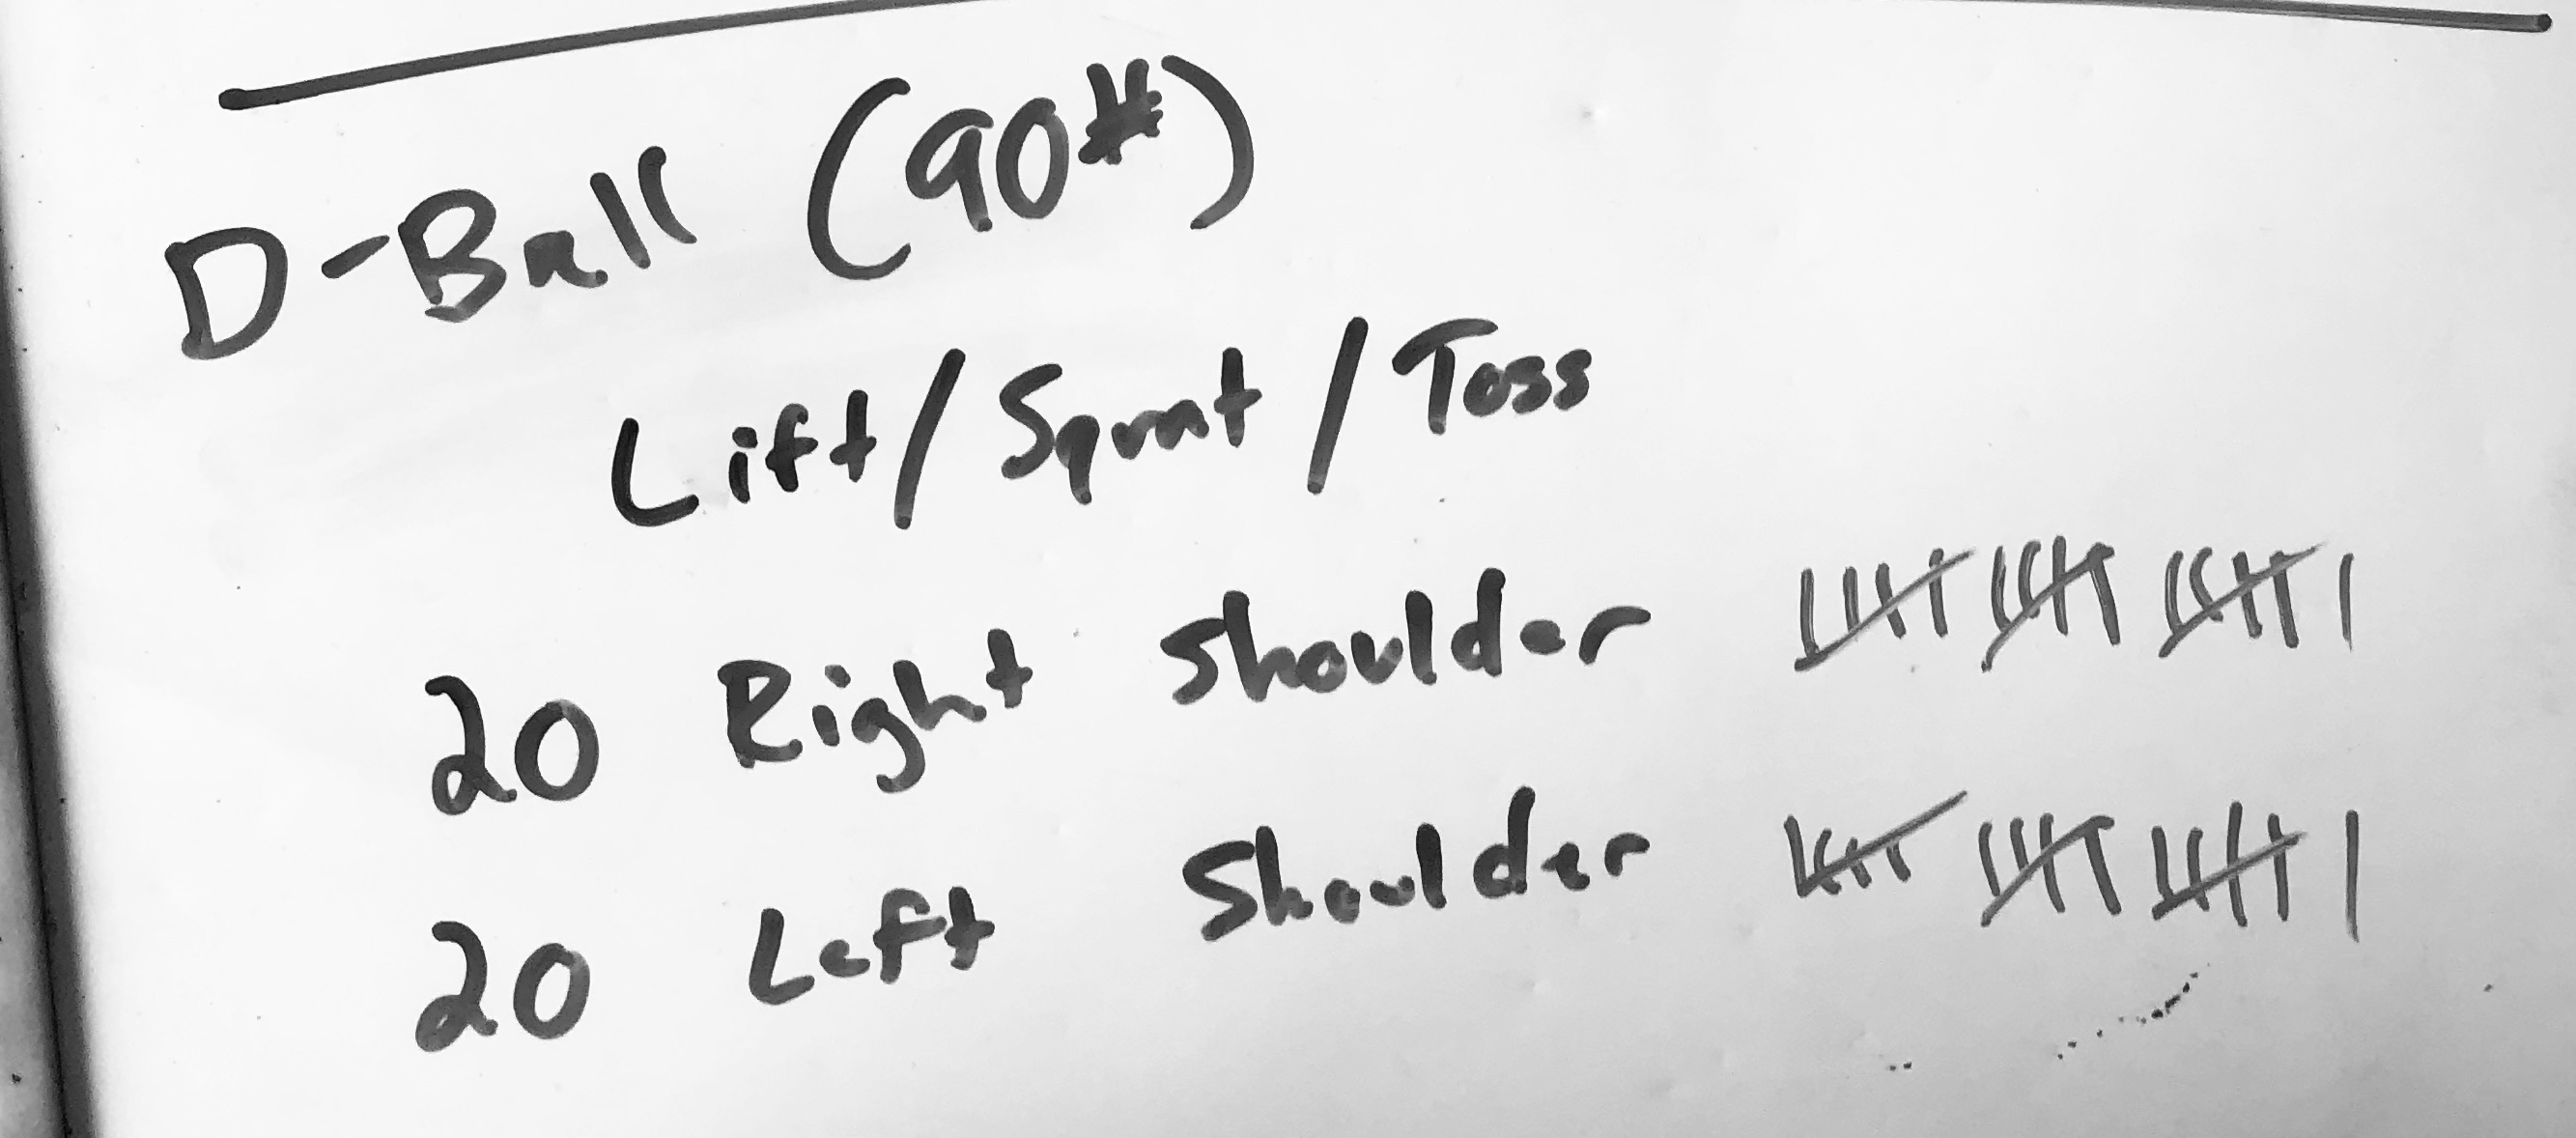 D-Ball (90#)
Lift/Squat/Toss
20 Right Shoulder 卌 卌 卌 |
20 Left Shoulder 卌 卌 卌 |